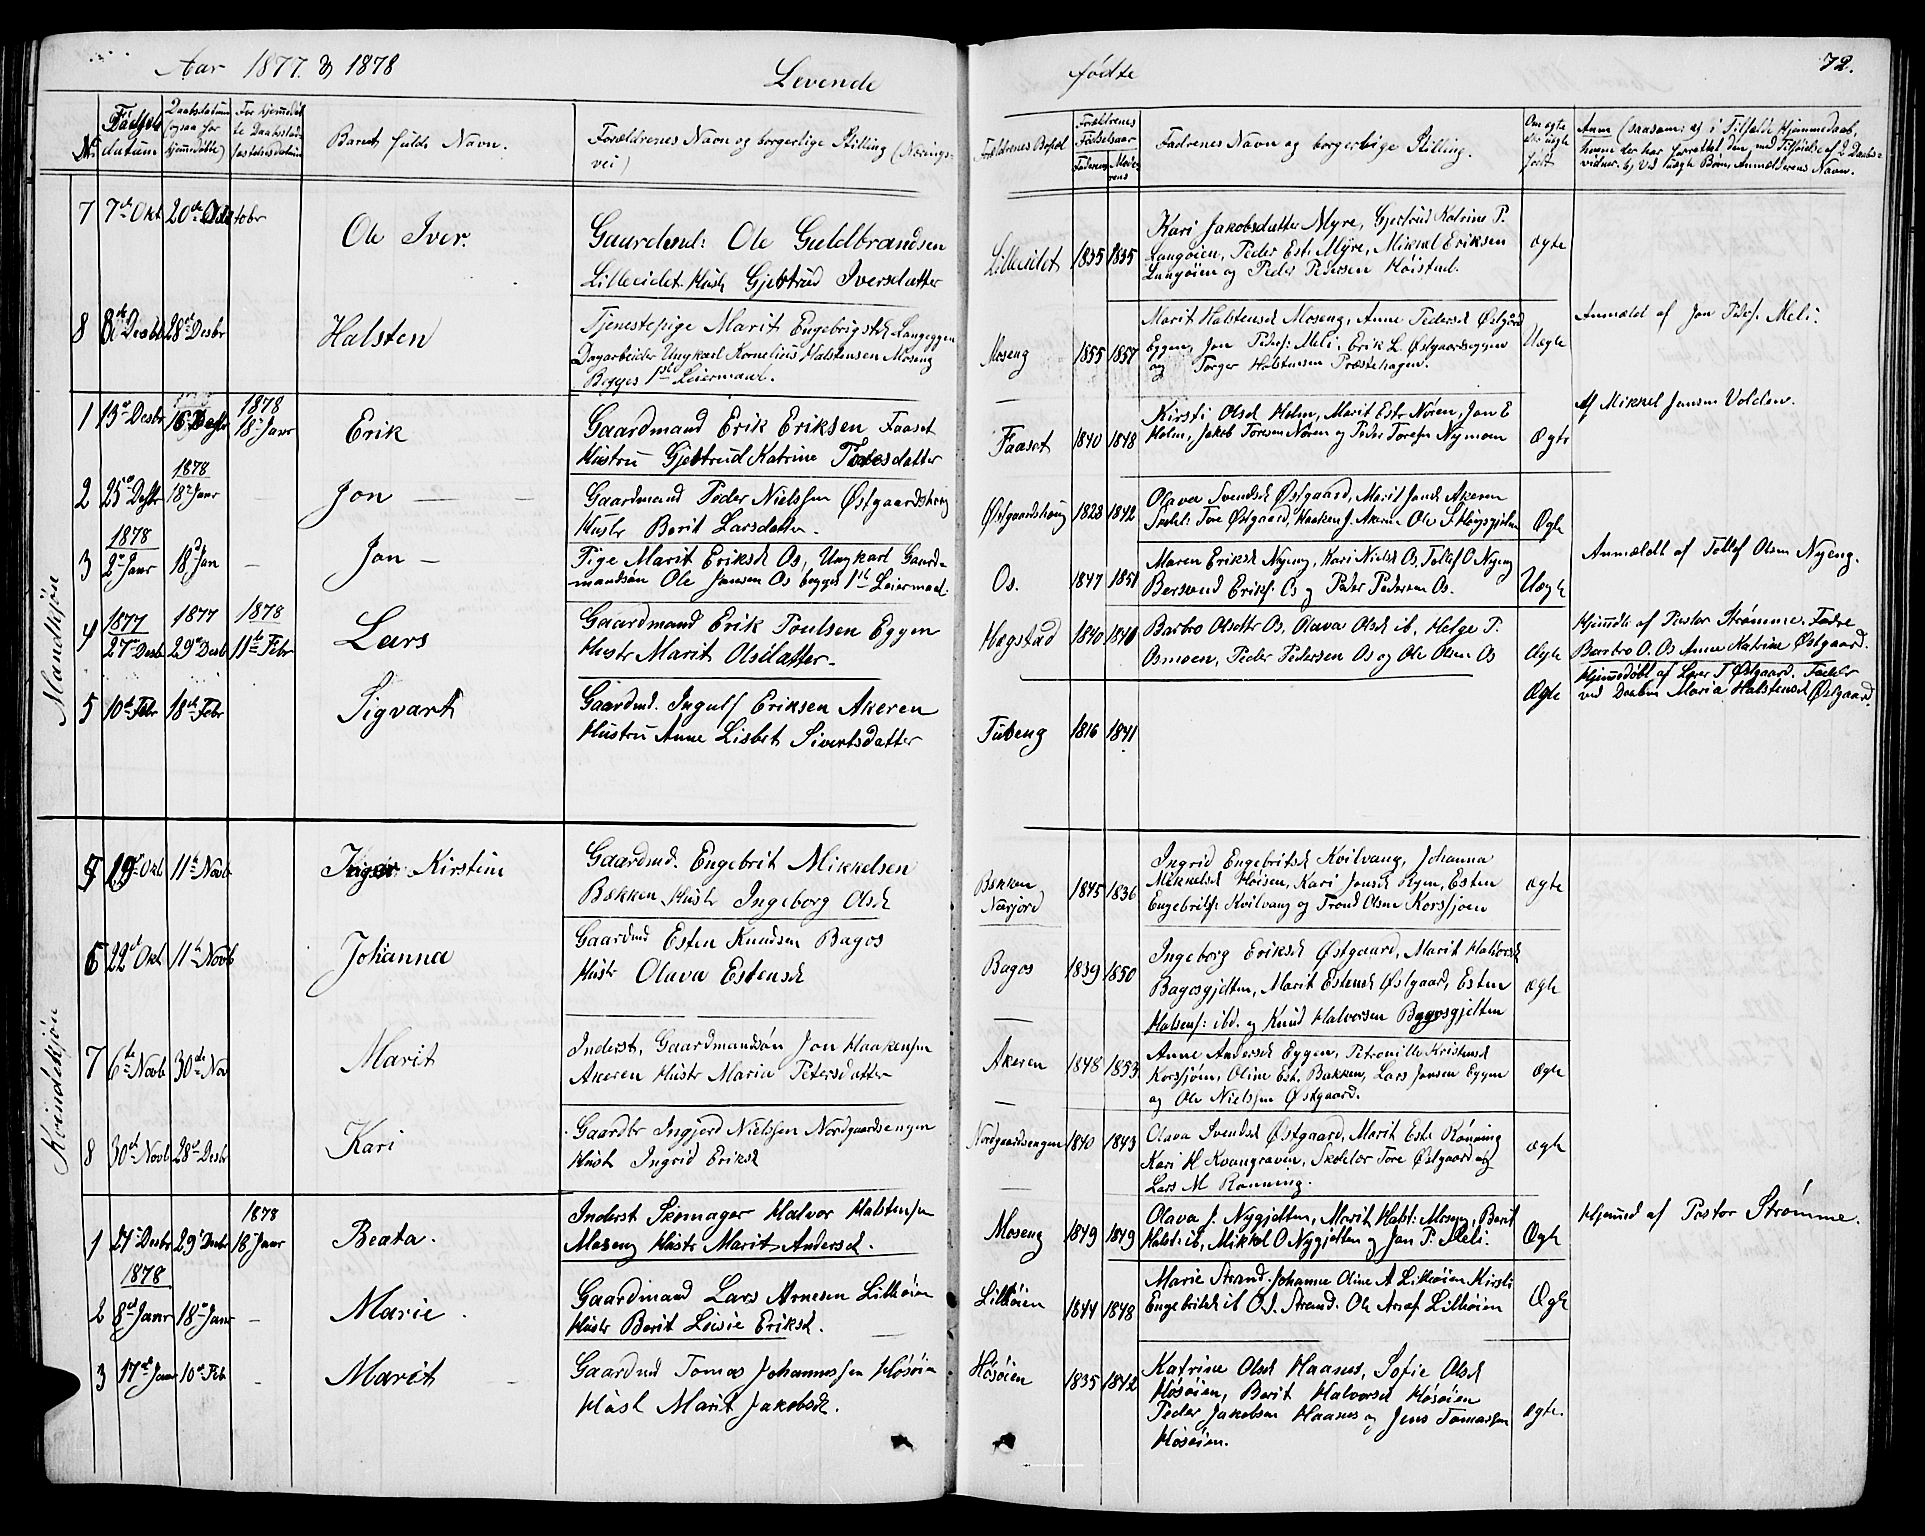 Aar 1877. & 1878
Levende
fødte
72.
No.
Fødsels datum
Daabsdatum (ogsaa for hjemmedøbte)
For hjemmedøbte Daabsstadfæstelsesdatum
Barnets fulde Navn.
Forældrenes Navn og borgerlige Stilling (Næringsvei)
Forældrenes Bopæl
Forældrenes Fødselsaar
Faderens
Moderens
Fadrenes Navn og borgerlige Stilling.
Om ægte eller uægte født
Anm (saasom: a) i Tilfælde Hjemmedaab, hvem der har forrettet den, med Tilføielse af 2 Daabsvidner. b) Ved uægte Børn, Anmelderens Navn.
Mandkjøn
7 7de Okt 20de Oktober
Ole Iver.
Gaardmd: Ole Guldbrandsen
Lilleeidet Hustr Gjertrud Iversdatter
Lilleeidet 1835 1835
Kari Jakobsdatter Myre, Gjertrud Katrine P.
Langøien, Peder Est. Myre, Mikkel Eriksen
Langøien og Peder Pedersen Høistad.
ægte
8 8de Desbr 28de Desbr
Halsten
Tjenestepige Marit Engebrigtsd Langeggen
Dagarbeider Ungkarl Kornelius Halstensen Moseng
Begges 1ste Leiermaal.
Moseng 1855 1857
Marit Halstensd Moseng, Anne Pedersd Østgård
Eggen, Jon Peders: Meli, Erik L. Østgaardseggen
og Torger Halstensen Præstehagen.
Uægte
Anmeldt af Jon Peders. Meli.
1 13de Desbr 16 Desbr 1878 18de Janr
Erik
Gaardmand Erik Eriksen Faaset
Hustru Gjertrud Katrine Toresdatter
Faaset 1840 1848
Kirsti Olsd Holm, Marit Estr Nøren, Jon E
Holm, Jakob Toresen Nøren og Peder Toresen Nymoen
Ægte
Af Mikkel Jensen Volden.
2 25de Desbr 1878 18de Janr
Jon
Gaardmand Peder Nielssen Østgaardshaug
Hustr Berit Larsdatter
Østgaardshaug 1823 1842
Olava Svendsd Østgaard, Marit Jonsd Akeren
Skolel: Tore Østgaard, Haaken J. Akeren Ole S. Høysgjelten
Ægte
3 1878 2den Janr 18de Jan
Jon
Pige Marit Eriksd Os, Ungkarl Gaard-
mandsøn Ole Jonsen Os begges 1ste Leiermaal.
Os. 1847 1851
Maren Eriksd Nyeng, Kari Nielsd Os, Tollef O Nyeng
Bersvend Eriks. Os og Peder Pedersen Os.
Uægte
Anmeldt af Tollef Olsen Nyeng.
4 1877 27de Desb 1877 29de Desb 1878 11te Febr
Lars
Gaardmand Erik Poulsen Eggen
Hustr Marit Olsdatter
Hegstad 1840 1840
Barbro Olsdtter Os, Olava Olsd ib, Helge P.
Osmoen, Peder Pedersen Os og Ole Olsen Os
Ægte
Hjemdb af Pastor Strømme. Fadre
Barbro O. Os Anne Katrine Østgaard.
5 10de Febr 18de Febr
Sigvart
Gaardmd. Ingulf Eriksen Akeren
Hustru Anne Lisbet Sivertsdatter
Tubeng 1816 1841
Ægte
Hjemmedøbt af Lærer T Østgaard. Fadder
ved Daaben Maria Halstensd Østgaard.
Kvindekjøn
19de Okt 11te Novb
Inger Kirstine
Gaardmd. Engebrit Mikkelsen
Bekken Hustr Ingeborg Olsd
Bekken Narjord 1845 1836
Ingrid Engebritsd Kvilvang, Johanna
Mikkelsd Moisen, Kari Jonsd Ryen, Esten
Engebrits: Kvilvang og Trond Olsen Korssjoen
ægte
6 22de Okt 11te Novb
Johanna
Gaardmd Esten Knudsen Bagos
Hustr Olava Estensd
Bagos 1839 1850
Ingeborg Eriksd Østgaard, Marit Halvorsd
Bagosgjelten, Marit Estensd Østgaard, Esten
Halsens: ibd. og Knud Halvorsen Bagosgjelten
ægte
7 6te Novb 30de Nov
Marit
Inderst, Gaardmandsøn Jon Haakensen
Akeren Hustr Maria Petersdatter
Akeren 1848 1853
Anne Andersd Eggen, Petronille Kristensd
Korssjøen, Oline Est. Bakken, Lars Jonsen Eggen
og Ole Nielssen Østgaard.
ægte
8 30de Novb 28de Desbr
Kari
Gaardbr Ingjerd Nielssen Nordgaardsengen
Hust Ingrid Eriksd
Nordgaardsengen 1840 1843
Olava Svendsd Østgaard, Marit Est. Rønning
Kari H Kvangraven, Skolelær Tore Østgaard og
Lars M Rønning.
ægte
1 27de Desbr 29de Desbr 1878 18de Janr
Beata.
Inderst Skomager Halvor Halstensen
Moseng Hustr Marit Andersd.
Moseng 1849 1849
Olava J. Nygjelten, Marit Halst: Moseng, Berit
Halst: ib, Mikkel O Nygjelten og Jon P. Meli.
Ægte
Hjemmed af Pastor Strømme.
2 1878 8de Janr 18de Janr
Marie
Gaardmand Lars Arnesen Lilleøien
Hustr Berit Lovise Eriksd.
Lilleøien 1844 1848
Marie Strand. Johanne Oline A Lilleøien Kirsti
Engebritsd ib O. J. Strand. Ole Arnes. Lilleøien
Ægte
3 17de Janr 10de Feb
Marit
Gaardmd Tomas Johannessen Hósøien
Hústr Marit Jakobsd.
Hósøien 1835 1842
Katrine Olsd Haanes, Sofie Olsd
Hósøien, Berit Halvorsd Hósøien
Peder Jakobsen Haanes og Jens Tomassen
Hósøien.
ægte.